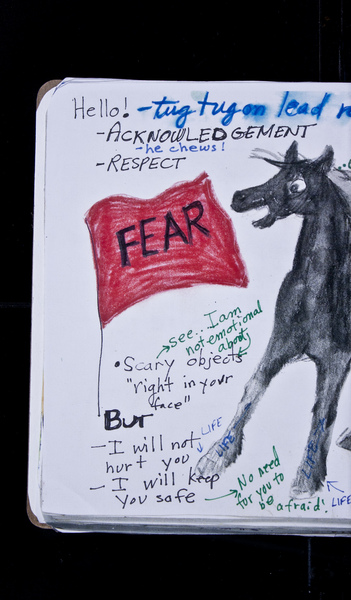 Hello! -tug tug on lead
-ACKNOWLEDGEMENT
-he chews!
-RESPECT
FEAR
see.. I am
not emotional
about
• Scary objects
"right in your
face"
But
- I will not
hurt you
- I will keep
you safe
No need
for you to
be afraid!
LIFE
LIFE
LIFE
LIFE